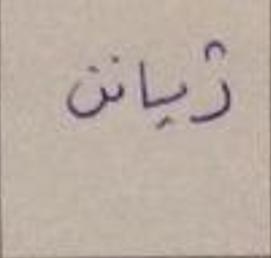 ژیانن